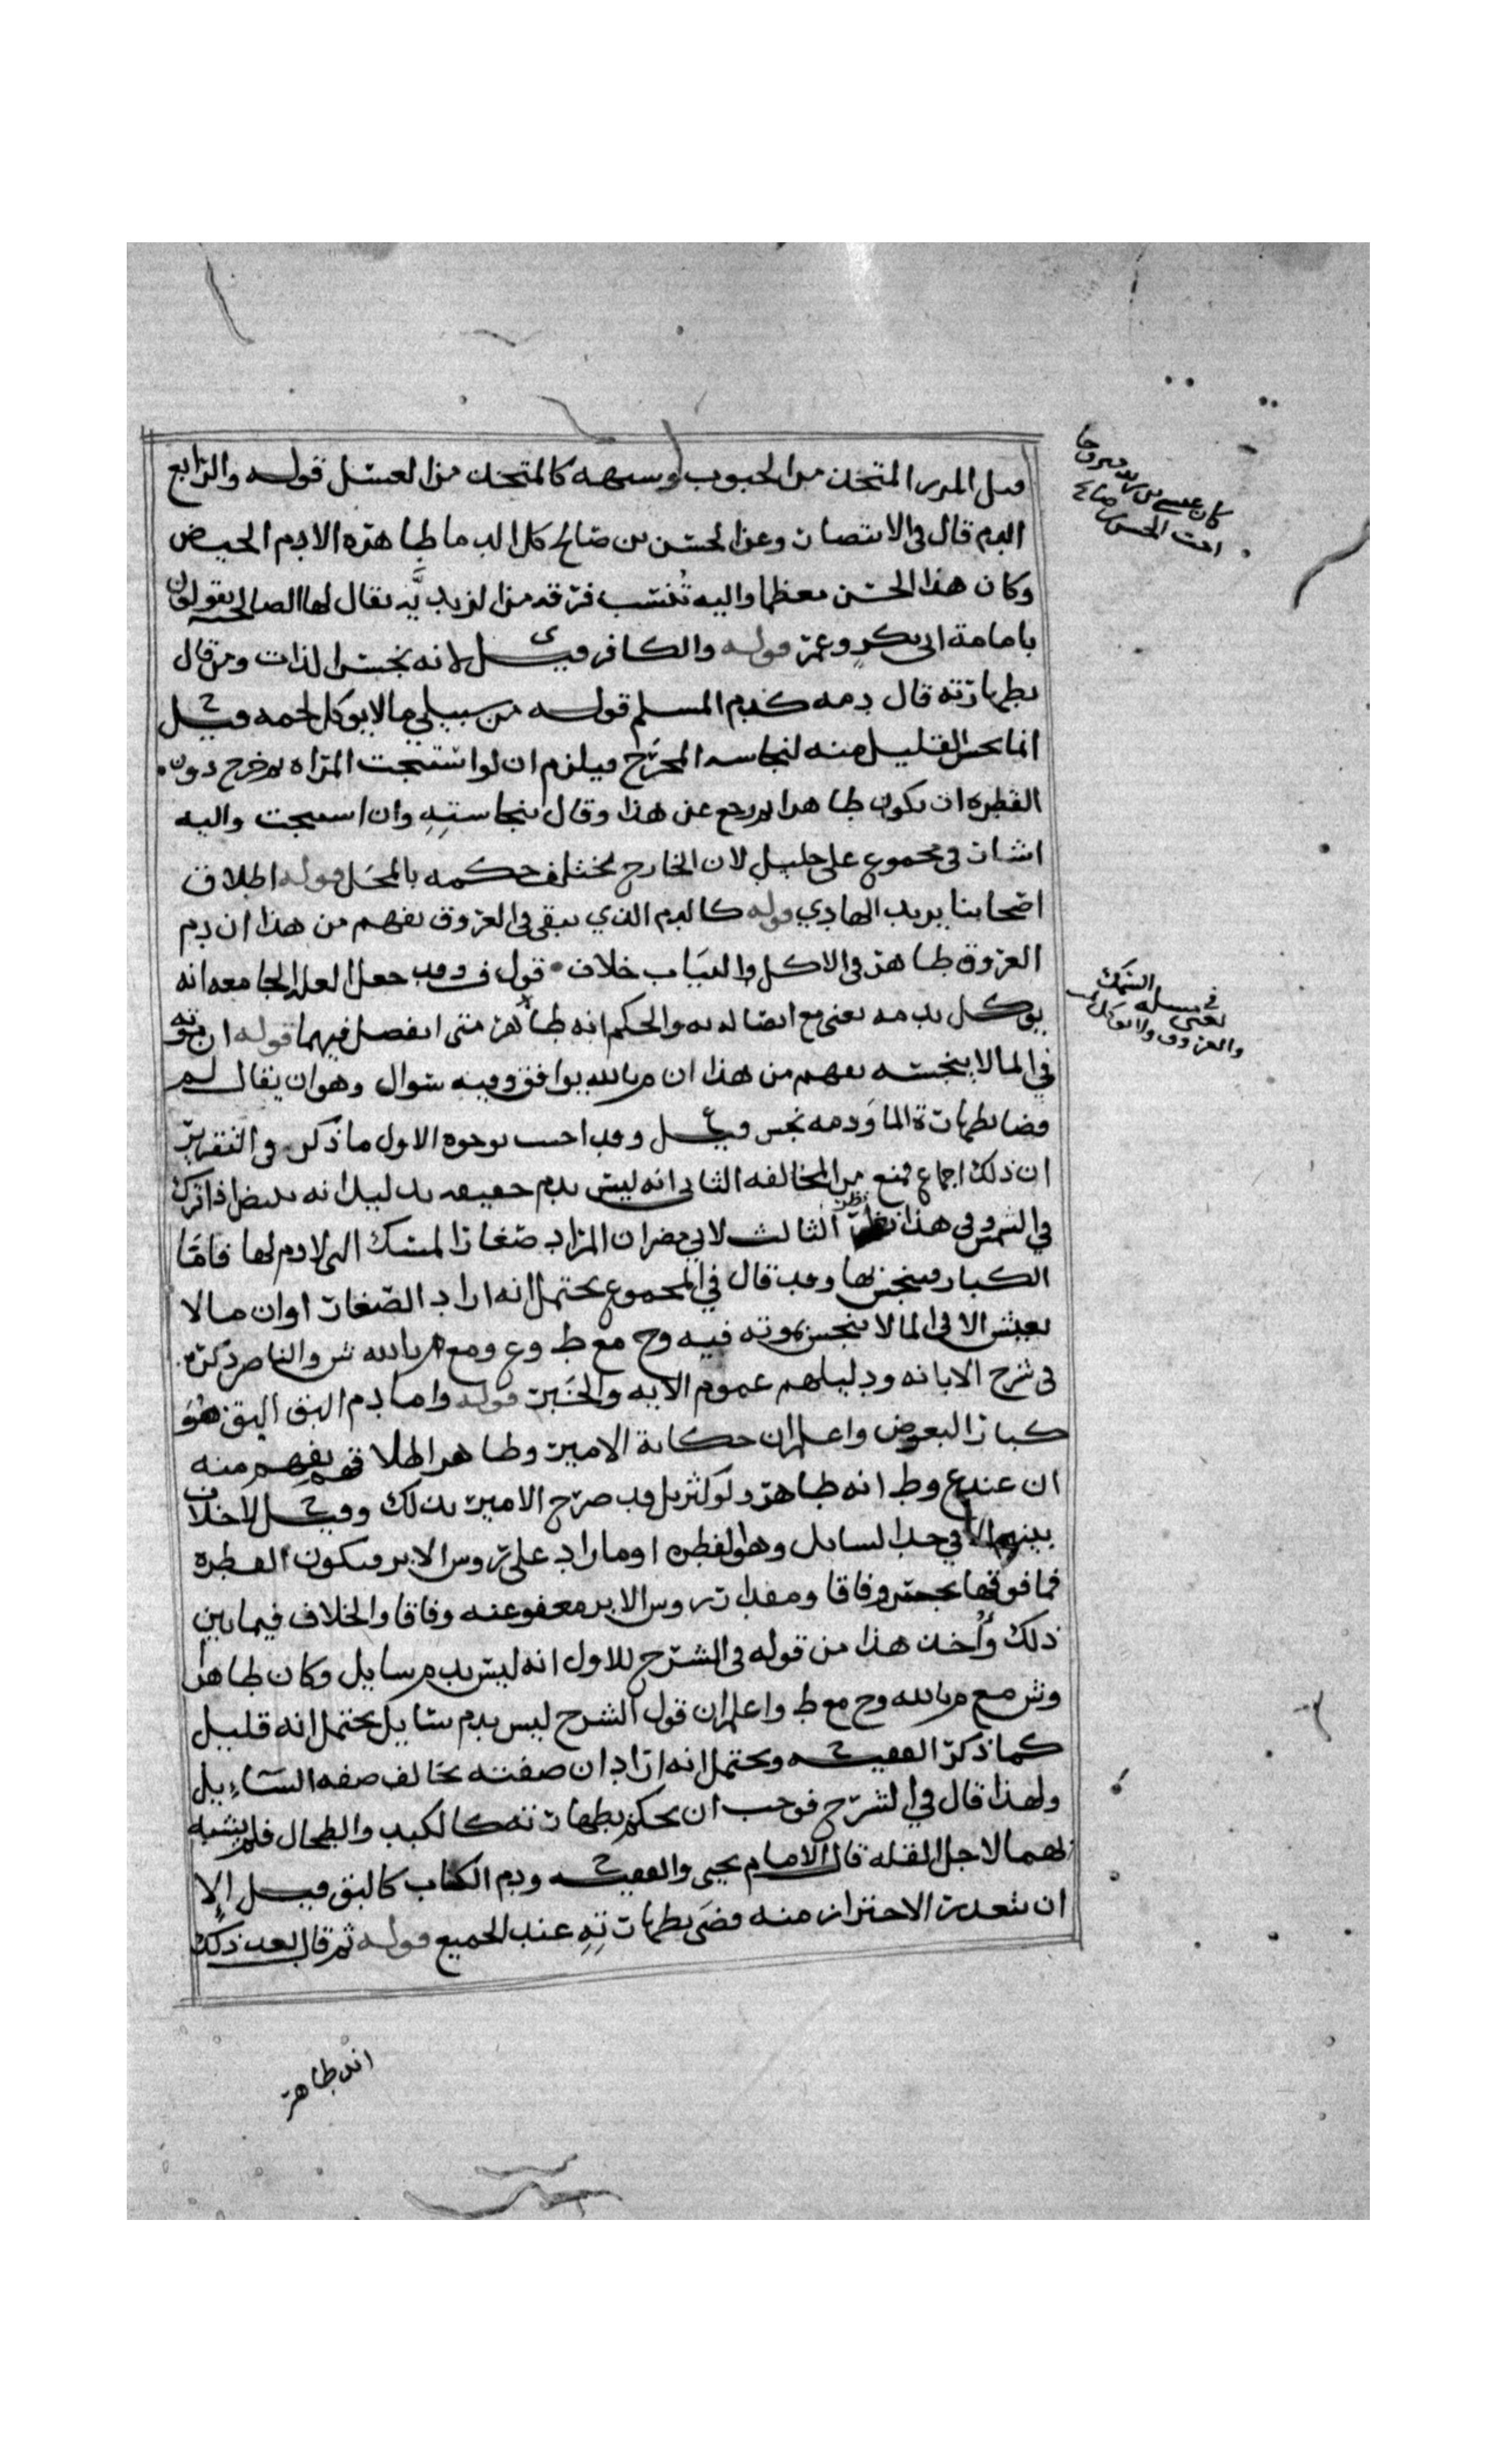 قيل المزر المتخذ من الحبوب وشبهه كالمتخذ من العسل قوله والرابع
الدم قال في الانتصار وعن الحسن بن صالح كل الدما طاهره الا دم الحيض
وكان هذا الحسن معظما واليه تُنسب فرقه من الزيديَّه يقال لها الصالحيه يقولون
بامامة ابي بكرٍ وعمر قوله والكافر قيل ي لانه نجس الذات ومن قال
بطهارته قال دمه كدم المسلم قوله من سبيلي ما لا يوكل لحمه قيل
انما نجس القليل منه لنجاسه المخرج فيلزم ان لو استنجت المراه ثم خرج دون
القطره ان يكون طاهرا ثم رجع عن هذا وقال بنجاستِهِ وان استنجت واليه
اشار في مجموع علي خليل لان الخارج يختلف حكمه بالمحل قوله اطلاق
اصحابنا يريد الهادي قوله كالدم الذي يبقى في العروق يفهم من هذا ان دم
العروق طاهر في الاكل والثياب خلاف قول ف وقد جعل العله الجامعه انه
يوكل بدمه يعني مع اتصاله به والحكم انه طاهر متى انفصل فيهما قوله ان موته
في الما لا ينجسه يفهم من هذا ان م بالله يوافق وفيه سوال وهو ان يقال لم
قضا بطهارة الما ودمه نجس قيل وقد اجيب بوجوه الاول ما ذكر في التقرير
ان ذلك اجماع فمنع من المخالفه الثاني انه ليس بدم حقيقه بدليل انه يبيض اذا ترك
في الشمس وفي هذا نظر الثالث لابي مضر ان المراد صغار السمك التي لا دم لها فامَّا
الكبار فينجس بها وقد قال في المجموع يحتمل انه اراد الصغار او ان ما لا
يعيش الا في الما لا ينجس بموته فيه وح مع ط وع ومع م بالله ش والناصر ذكره
في شرح الابانه ودليلهم عموم الايه والخَبر قوله واما دم البق البق هُوَ
كبار البعوض واعلم ان حكاية الامير وظاهر اطلاقهم يفهم منه
ان عند ع وط انه طاهر ولو كثر بل قد صرح الامير بذلك وقيل لا خلاف
بينهم الا في حد السايل وهو القطره او ما زاد على روس الابر فيكون القطره
فما فوقها نجس وفاقا ومقدار روس الابر معفو عنه وفاقا والخلاف فيما بين
ذلك وأُخذ هذا من قوله في الشرح للاول انه ليس بدم سايل وكان طاهرا
وش مع م بالله وح مع ط واعلم ان قول الشرح ليس بدم سايل يحتمل انه قليل
كما ذكر الفقيه ويحتمل انه اراد ان صفته تخالف صفه السَّايل
ولهذا قال في الشرح فوجب ان يحكم بطهارته كالكبد والطحال فلم يشبه
بهما لاجل القله قال الامام يحيى والفقيه ودم الكتان كالبق قيل إلا
ان يتعذر الاحتراز منه قضى بطهارتِهِ عند الجميع قوله ثم قال بعد ذلك
انه طاهر
كان عيسى بن زيد متزوجا
اخت الحسن بن صالح
يعني في مسله السمك
والعروق ولا يوكل